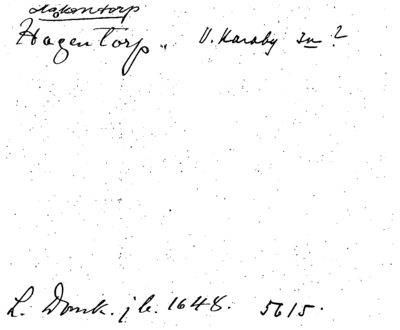 Håkantorp
Hagentorp " V. Karaby sn ?
L. Domk. jb. 1648. 5615.